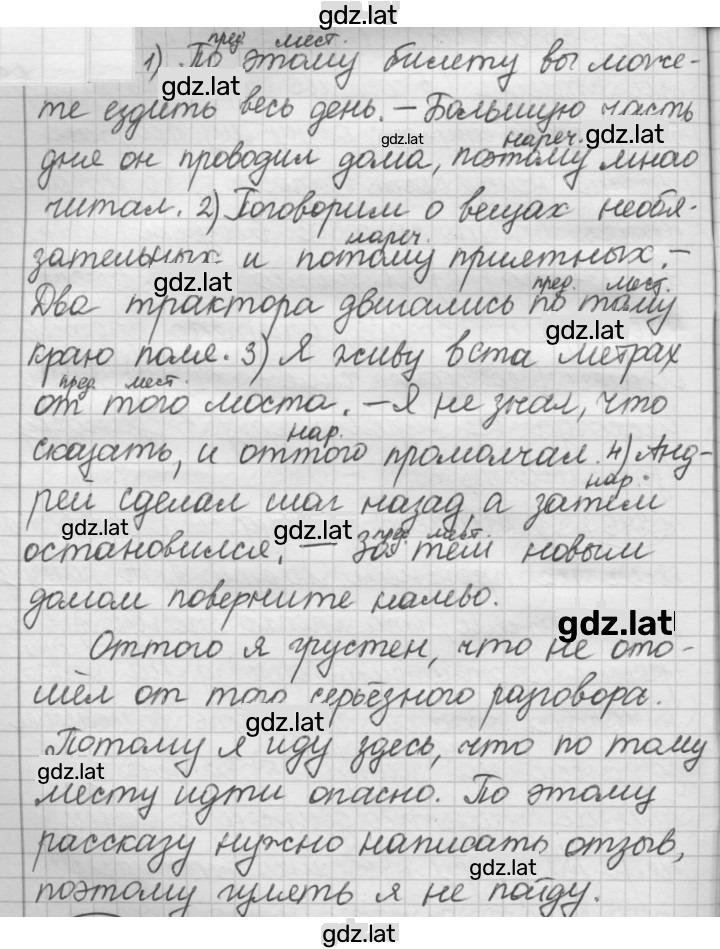 gdz.lat
пред. мест.
1) По этому билету вы може-
gdz.lat
те ездить весь день. – Большую часть
gdz.lat
нареч. gdz.lat
дня он проводил дома, поэтому много
читал. 2) Поговорим о вещах необя-
нареч.
зательных и потому приятных. –
gdz.lat
пред. мест.
Два трактора двигались по тому
gdz.lat
краю поля. 3) Я живу в ста метрах
пред. мест.
от того моста. – Я не знал, что
нар.
сказать, и оттого промолчал. 4) Анд-
нар.
рей сделал шаг назад, а затем
gdz.lat gdz.lat
пред. мест.
остановился. – За тем новым
домом поверните налево.
gdz.lat
Оттого я грустен, что не ото-
шёл от того серьёзного разговора.
gdz.lat
Потому я иду здесь, что по тому
gdz.lat
месту идти опасно. По этому
рассказу нужно написать отзыв,
gdz.lat
поэтому гулять я не пойду.
gdz.lat